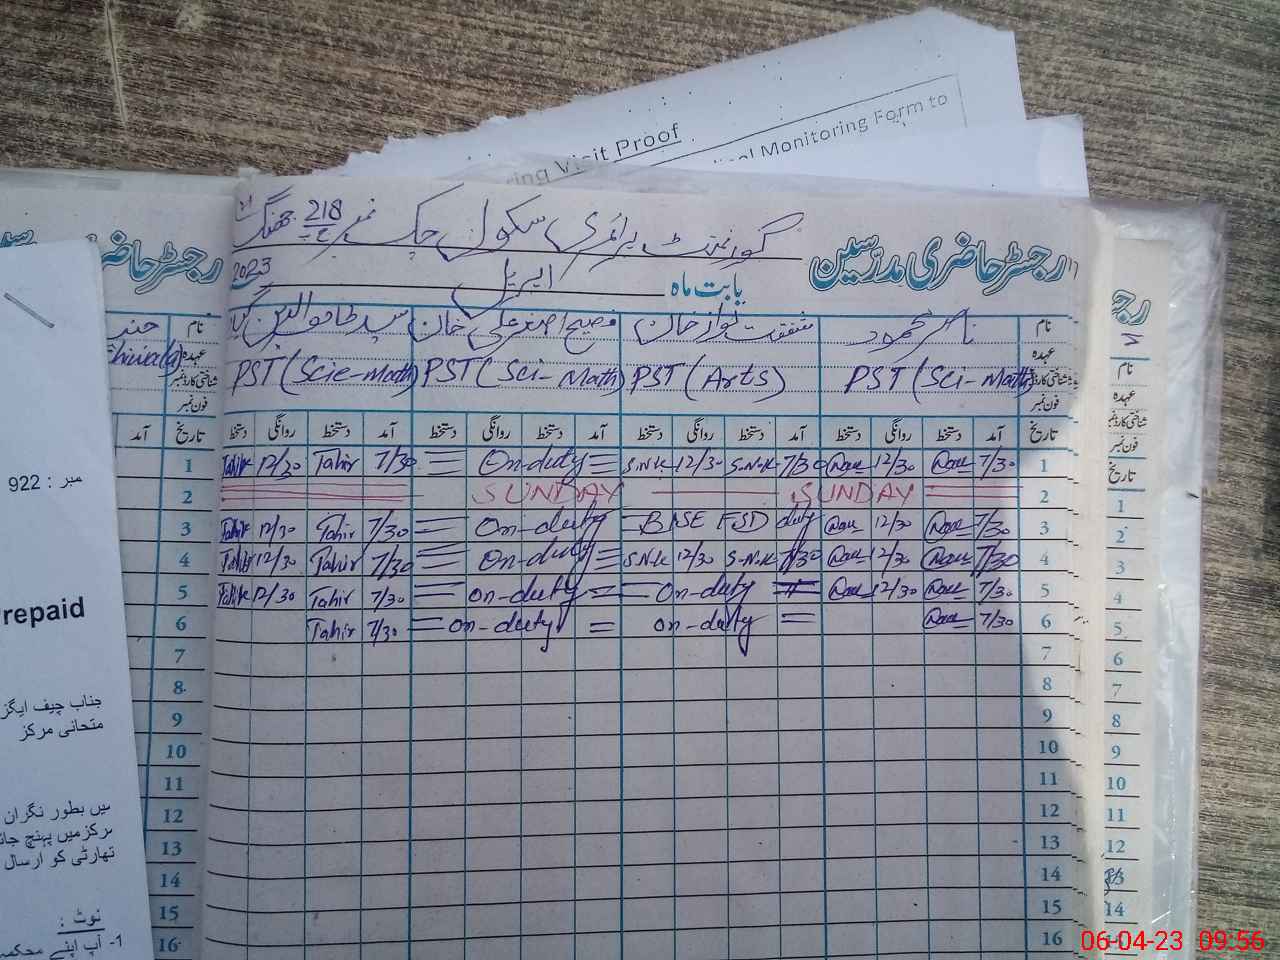 Visit Proof
Monitoring Form to
گورنمنٹ پرائمری سکول چک نمبر 218 ج ب جھنگ
رجسٹر حاضری مدرسین
بابت ماہ اپریل 2023
نام ناصر محمود شفقت نواز خان فصیح اصغر علی خان
عہدہ
PST (Sci-Math) PST (Arts) PST (Sci-Math) PST (Scie-Math)
شناختی کارڈ نمبر
فون نمبر
تاریخ آمد دستخط روانگی دستخط آمد دستخط روانگی دستخط آمد دستخط روانگی دستخط آمد دستخط روانگی دستخط
1 Tahir 12/30 Tahir 7/30 = On-duty = S.N.K 12/30 S.N.K 7/30 12/30 7/30 1
2 SUNDAY SUNDAY 2
3 Tahir 12/30 Tahir 7/30 = On-duty = BISE FSD duty 12/30 7/30 3
4 Tahir 12/30 Tahir 7/30 = On-duty = S.N.K 12/30 S.N.K 7/30 12/30 7/30 4
5 Tahir 12/30 Tahir 7/30 = on-duty = On-duty = 12/30 7/30 5
6 Tahir 7/30 = on-duty = on-duty = 7/30 6
7 7
8 8
9 9
10 10
11 11
12 12
13 13
14 14
15 15
16 16
نام
عہدہ
فون نمبر
تاریخ
آمد
رجسٹر حاضری
نام
عہدہ
شناختی کارڈ نمبر
فون نمبر
تاریخ
1
2
3
4
5
6
7
8
9
10
11
12
13
14
نمبر : 922
repaid
جناب چیف ایگز
متحانی مرکز
میں بطور نگران
مرکز میں پہنچ جائ
تھارٹی کو ارسال
نوٹ :
1- آپ اپنے محکمہ
06-04-23 09:56